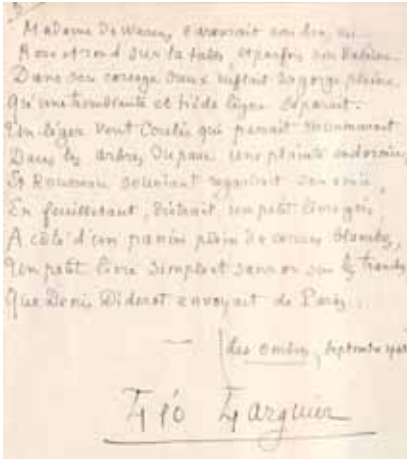 Madame De Warens s'accoudait
Rose et rond sur la table, et parfois son haleine
Dans son corsage creux enflait sa gorge pleine
Qu'une tremblante et tiède ligne séparait.
Un léger vent coulis qui passait murmurant
Dans les arbres du parc une plainte endormie,
Et Rousseau souriant regardait son amie,
En feuilletant, distrait, un petit livre gris,
A côté d'un panier plein de cerises blanches,
Un petit livre simple et sans or sur les tranches
Que Denis Diderot envoyait de Paris...
des ombres, Septembre
Léo Larguier